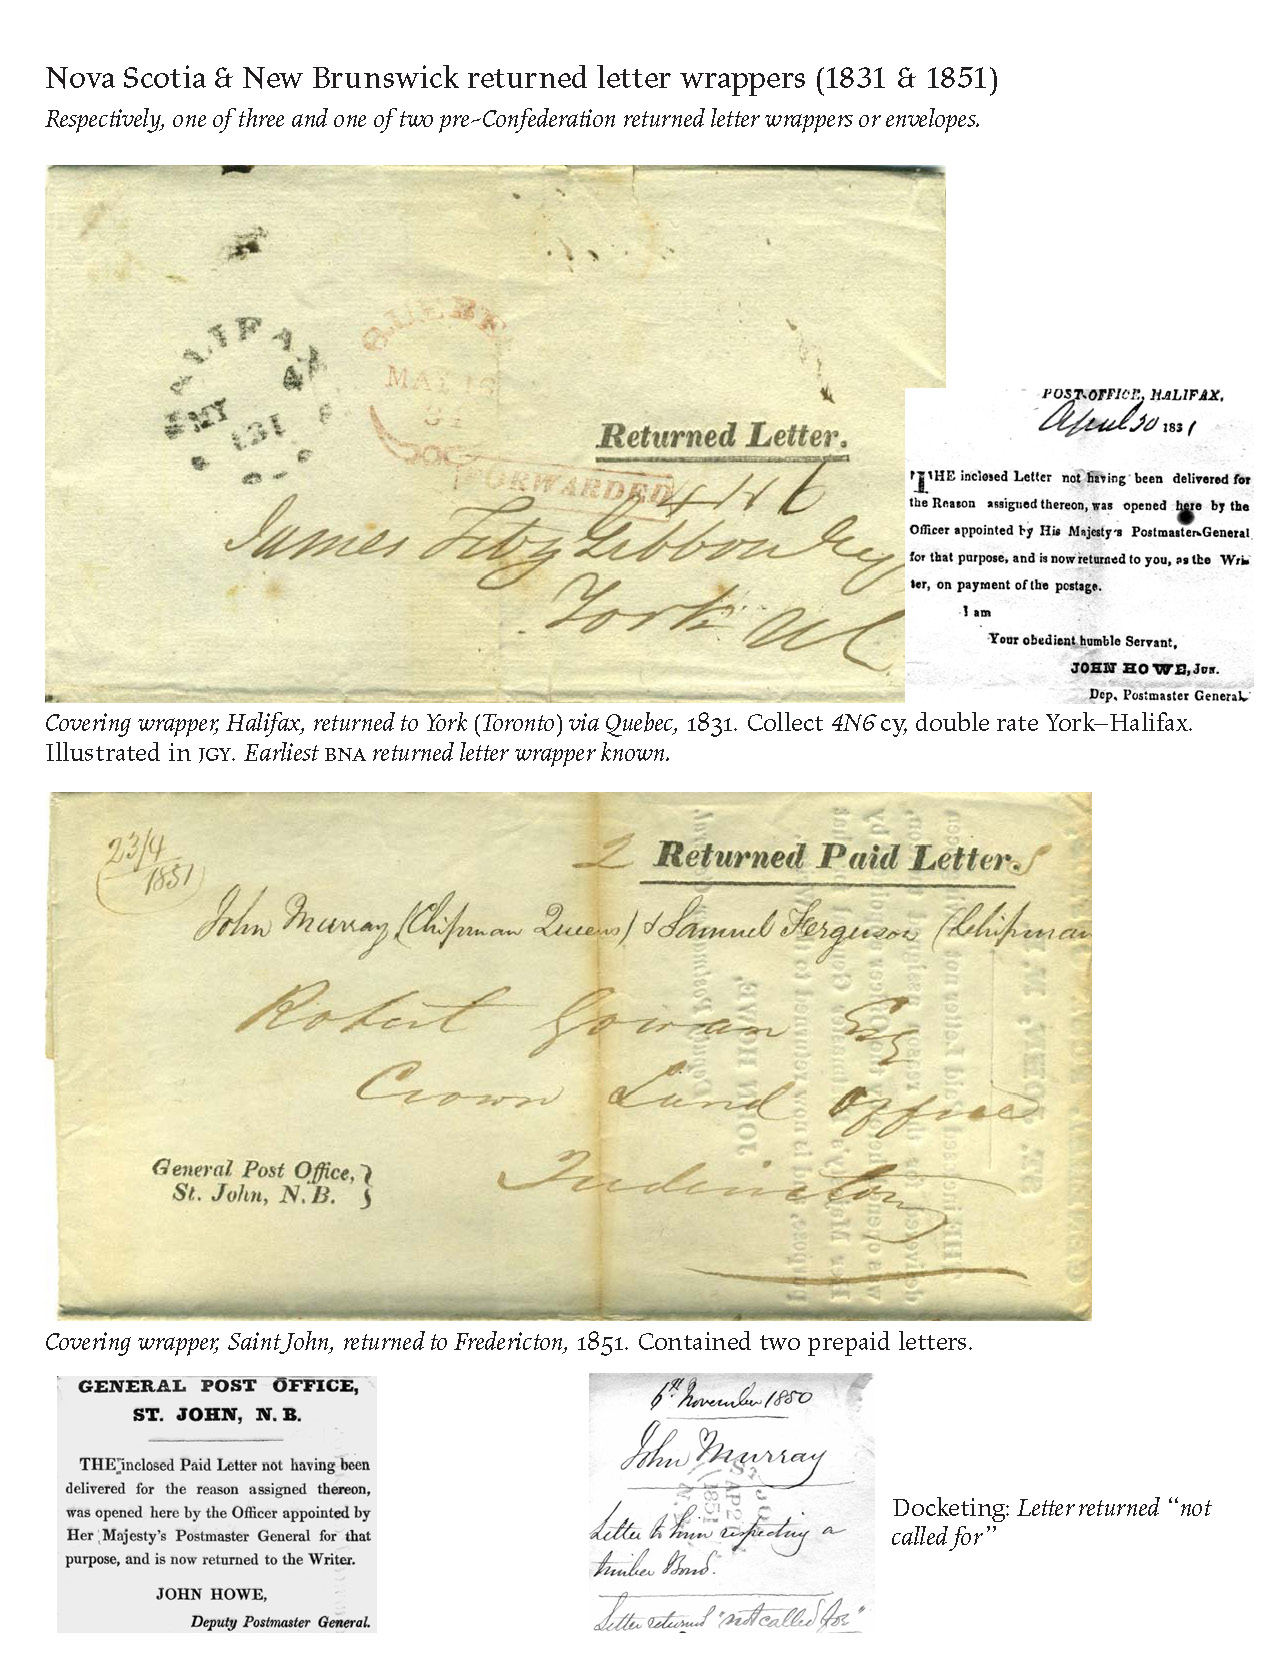 Nova Scotia & New Brunswick returned letter wrappers (1831 & 1851)
Respectively, one of three and one of two pre-Confederation returned letter wrappers or envelopes.
HALIFAX
MY 4
1831
QUEBEC
MAY 16
31
FORWARDED
Returned Letter.
4N6
James FitzGibbon Esq
York UC
POST-OFFICE, HALIFAX,
April 30 1831
THE inclosed Letter not having been delivered for
the Reason assigned thereon, was opened here by the
Officer appointed by His Majesty's Postmaster-General
for that purpose, and is now returned to you, as the Wri-
ter, on payment of the postage.
I am
Your obedient humble Servant,
JOHN HOWE, Jun.
Dep. Postmaster General.
Covering wrapper, Halifax, returned to York (Toronto) via Quebec, 1831. Collect 4N6 cy, double rate York–Halifax.
Illustrated in JGY. Earliest BNA returned letter wrapper known.
23/4
1851
2 Returned Paid Letter.s
John Murray (Chipman Queens) & Samuel Ferguson (Chipman
Robert Gowan Esq
Crown Land Office
Fredericton
General Post Office,
St. John, N.B.
Covering wrapper, Saint John, returned to Fredericton, 1851. Contained two prepaid letters.
GENERAL POST OFFICE,
ST. JOHN, N. B.
THE inclosed Paid Letter not having been
delivered for the reason assigned thereon,
was opened here by the Officer appointed by
Her Majesty's Postmaster General for that
purpose, and is now returned to the Writer.
JOHN HOWE,
Deputy Postmaster General.
6th November 1850
John Murray
Letter to him respecting a
timber Bond.
Letter returned "not called for"
Docketing: Letter returned “not
called for”